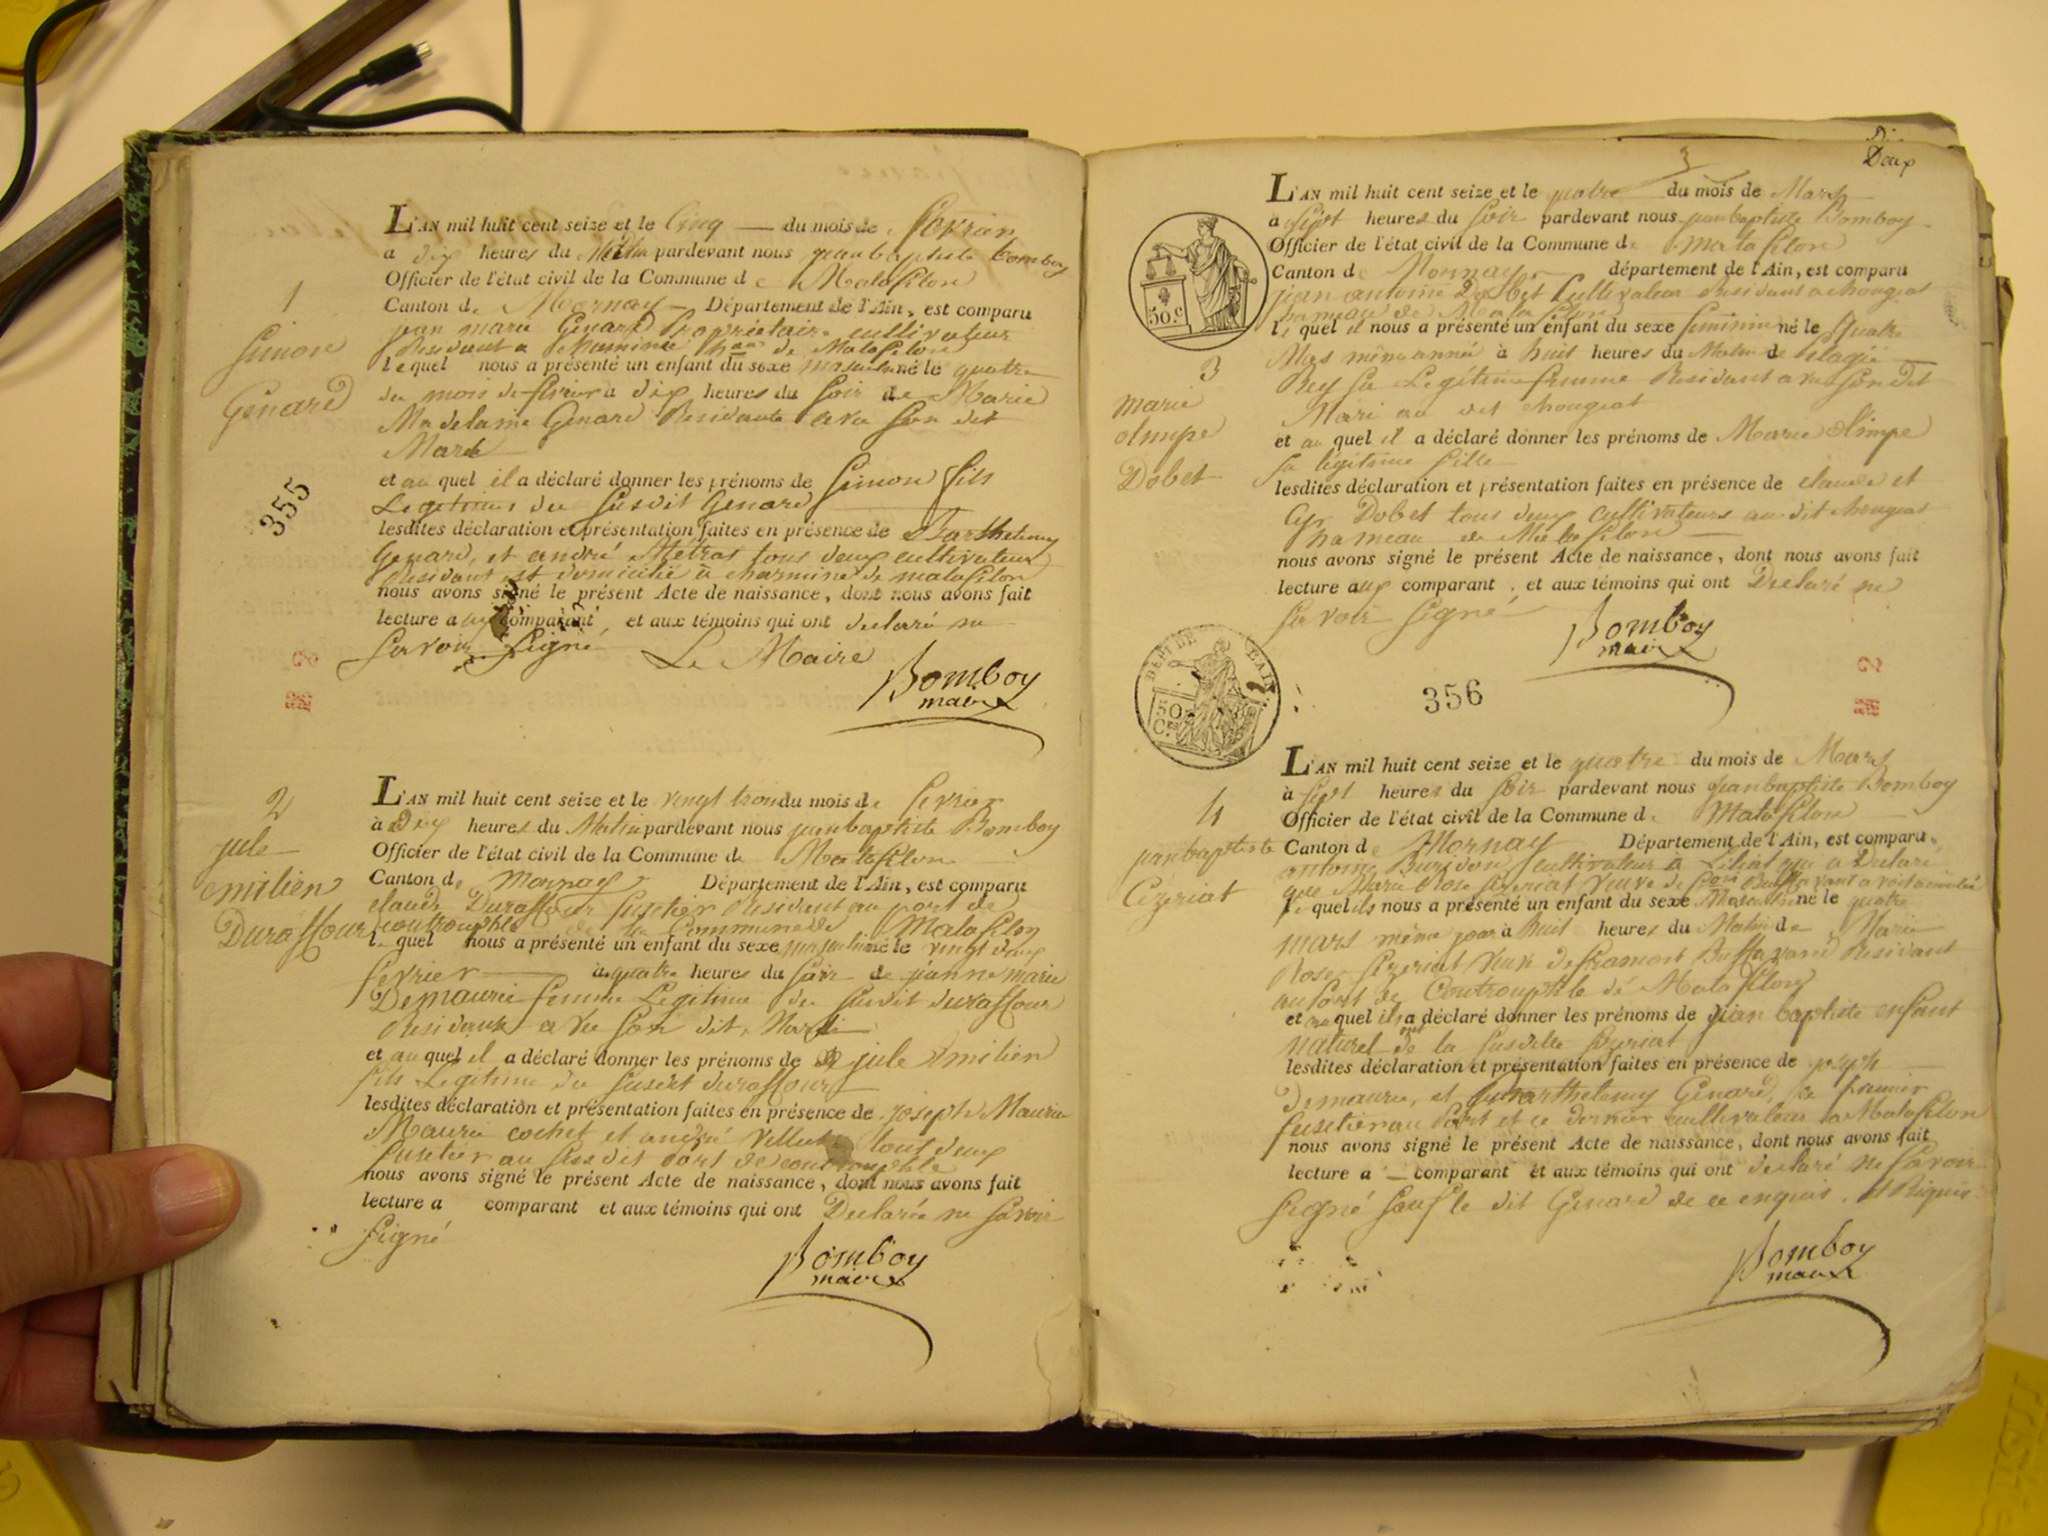 L'AN mil huit cent seize et le Cinq du mois de fevrier
a dix heures du Matin pardevant nous jeanbaptiste bomboy
Officier de l'état civil de la Commune de Matafilon
1
Canton de Mornay Département de l'Ain, est comparu
jean marie Genard Propriétaire cultivateur
Simon
Residant a Charmine ham de Matafilon
Le quel nous a présenté un enfant du sexe masculin né le quatre
du mois de fevrier a dix heures du soir de Marie
Genard
Madelaine Genard Residante avec son dit
Mari
et au quel il a déclaré donner les prénoms de Simon fils
Legitime du susdit Genard
355
lesdites déclaration et présentation faites en présence de Barthelemy
Genard, et andré Métras tous deux cultivateurs
Residant et domicilié a charmine de matafilon
nous avons signé le présent Acte de naissance, dont nous avons fait
lecture aux comparant et aux témoins qui ont declaré ne
savoir signé Le Maire
Bomboy
maire
L'AN mil huit cent seize et le vingt trois du mois de fevrier
2
à Dix heures du Matin pardevant nous jeanbaptiste Bomboy
jule
Officier de l'état civil de la Commune de Matafilon
emilien
Canton de Mornay Département de l'Ain, est comparu
claude Duraffour fustier Residant au port de
Duraffour
coutrouphle de la Commune de Matafilon
le quel nous a présenté un enfant du sexe masculin né le vingt deux
fevrier à quatre heures du soir de jeanne marie
Demaurie femme Legitime du susdit duraffour
Residante avec son dit Mari
et au quel il a déclaré donner les prénoms de jule Emilien
fils Legitime du susdit duraffour
lesdites déclaration et présentation faites en présence de joseph Maurie
Maurie cochet et andré tout deux
fustier au susdit port de coutrouphle
nous avons signé le présent Acte de naissance, dont nous avons fait
lecture a comparant et aux témoins qui ont Declaré ne savoir
signé
Bomboy
maire
Deux
3
L'AN mil huit cent seize et le quatre du mois de Mars
a sept heures du soir pardevant nous jeanbaptiste Bomboy
Officier de l'état civil de la Commune de Matafilon
Canton de Mornay département de l'Ain, est comparu
jean antoine Dobet Cultivateur Residant a chougeat
50.c
hameau de Matafilon
le quel il nous a présenté un enfant du sexe feminin né le quatre
Mars même année à huit heures du Matin de elagie
3
Rey sa Legitime femme Residant avec son dit
marie
Mari au dit chougeat
olimpe
et au quel il a déclaré donner les prénoms de Marie Olimpe
sa légitime fille
Dobet
lesdites déclaration et présentation faites en présence de claude et
Cyr Dobet tous deux cultivateurs au dit chougeat
hameau de Matafilon
nous avons signé le présent Acte de naissance, dont nous avons fait
lecture aux comparant, et aux témoins qui ont Declaré ne
savoir signé
Bomboy
maire
DEPT DE L'AIN
50
Ces
2
356
L'AN mil huit cent seize et le quatre du mois de Mars
à sept heures du soir pardevant nous jeanbaptiste Bomboy
4
Officier de l'état civil de la Commune de Matafilon
jeanbaptiste
Canton de Mornay Département de l'Ain, est comparu
antoine cultivateur a qui a Declaré
Cezeriat
que Marie Rose Cezeriat veuve de
le quel ils nous a présenté un enfant du sexe Masculin né le quatre
mars même jour à huit heures du Matin de Marie
Rose Cezeriat veuve de framont Buffavand Residant
au port de Coutrouphle de Matafilon
et au quel ils a déclaré donner les prénoms de jean baptiste enfant
naturel de la susdite Cezeriat
lesdites déclaration et présentation faites en présence de joseph
Demaurie, et Barthelemy Genard, le premier
fustier au Port et ce dernier cultivateur a Matafilon
nous avons signé le présent Acte de naissance, dont nous avons fait
lecture a comparant et aux témoins qui ont declaré ne savoir
signé sauf le dit Genard de ce enquis et Requis
Bomboy
maire